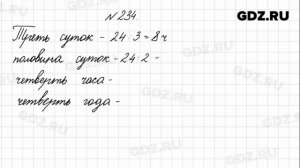 №234.
GDZ.RU
Треть суток - 24 : 3 = 8 ч
половина суток - 24 : 2 -
четверть часа -
четверть года -
GDZ.RU